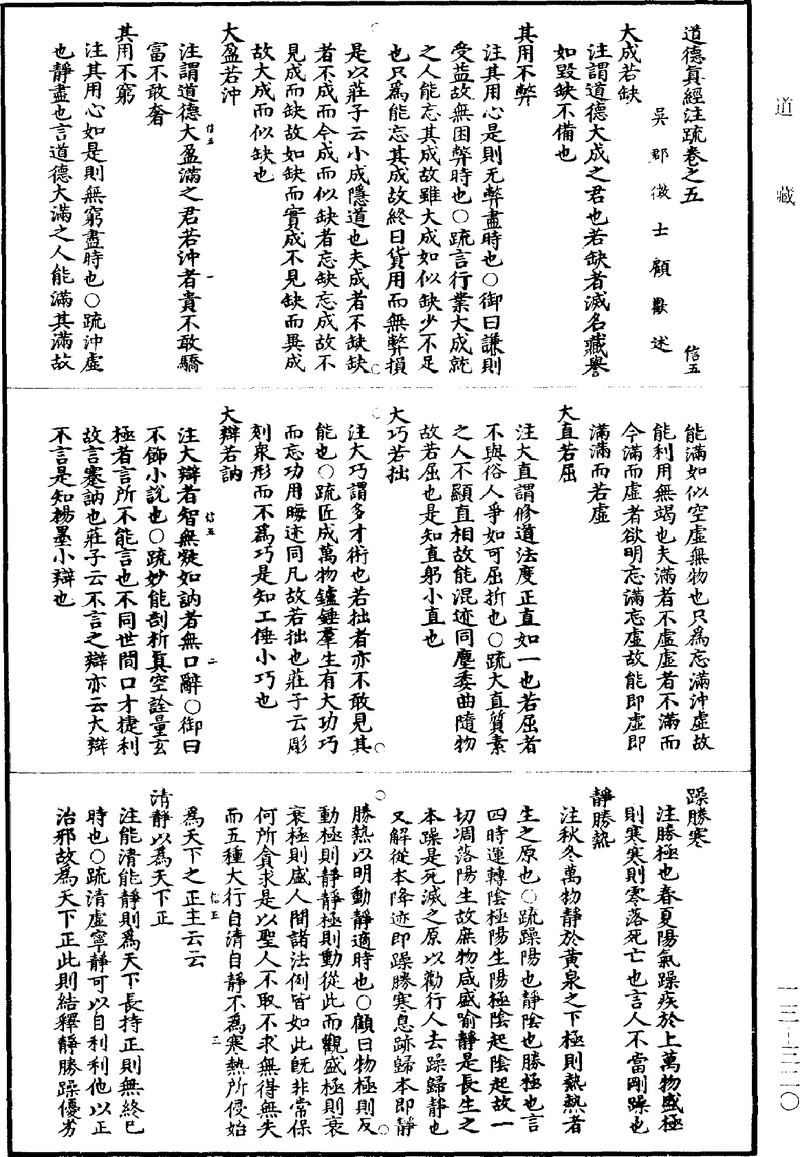 道藏
道德眞經注疏卷之五
信五
吳郡徵士顧歡述
大成若缺
注謂道德大成之君也若缺者滅名藏譽
如毀缺不備也
其用不弊
注其用心是則无弊盡時也○御曰謙則
受益故無困弊時也○疏言行業大成就
之人能忘其成故雖大成如似缺少不足
也只爲能忘其成故終日貨用而無弊損
是以莊子云小成隱道也夫成者不缺缺
者不成而今成而似缺者忘缺忘成故不
見成而缺故如缺而實成不見缺而異成
故大成而似缺也
大盈若沖
注謂道德大盈滿之君若沖者貴不敢驕
富不敢奢
其用不窮
注其用心如是則無窮盡時也○疏沖虛
也靜盡也言道德大滿之人能滿其滿故
信五
一
能滿如似空虛無物也只爲忘滿沖虛故
能利用無竭也夫滿者不虛虛者不滿而
今滿而虛者欲明忘滿忘虛故能即虛即
滿滿而若虛
大直若屈
注大直謂修道法度正直如一也若屈者
不與俗人爭如可屈折也○疏大直質素
之人不顯直相故能混迹同塵委曲隨物
故若屈也是知直躬小直也
大巧若拙
注大巧謂多才術也若拙者亦不敢見其
能也○疏匠成萬物鑪錘羣生有大功巧
而忘功用晦迹同凡故若拙也莊子云彫
刻衆形而不爲巧是知工倕小巧也
大辯若訥
注大辯者智無疑如訥者無口辭○御曰
不飾小說也○疏妙能剖析眞空詮量玄
極者言所不能言也不同世間口才捷利
故言蹇訥也莊子云不言之辯亦云大辯
不言是知楊墨小辯也
信五
二
躁勝寒
注勝極也春夏陽氣躁疾於上萬物盛極
則寒寒則零落死亡也言人不當剛躁也
靜勝熱
注秋冬萬物靜於黃泉之下極則熱熱者
生之原也○疏躁陽也靜陰也勝極也言
四時運轉陰極陽生陽極陰起陰起故一
切凋落陽生故庶物咸盛喻靜是長生之
本躁是死滅之原以勸行人去躁歸靜也
又解從本降迹即躁勝寒息跡歸本即靜
勝熱以明動靜適時也○顧曰物極則反
動極則靜靜極則動從此而觀盛極則衰
衰極則盛人間諸法例皆如此旣非常保
何所貪求是以聖人不取不求無得無失
而五種大行自清自靜不爲寒熱所侵始
爲天下之正主云云
清靜以爲天下正
注能清能靜則爲天下長持正則無終已
時也○疏清虛寧靜可以自利利他以正
治邪故爲天下正此則結釋靜勝躁優劣
信五
三
一三—三二〇